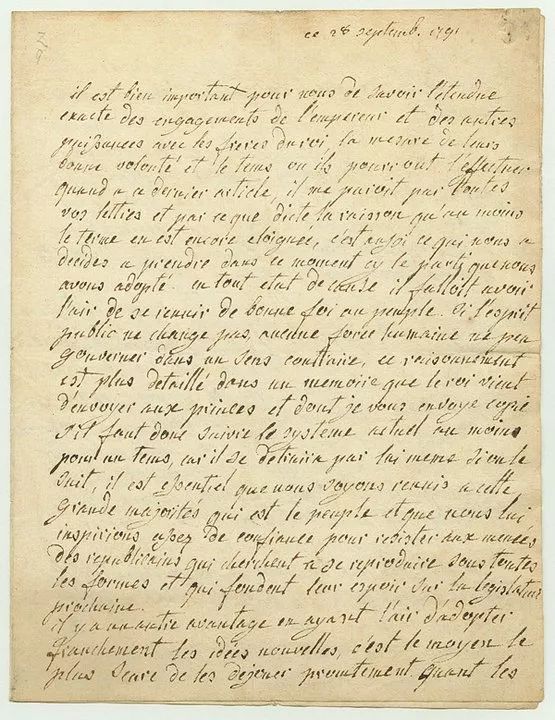 ce 28 septemb. 1791
il est bien important pour nous de savoir l'étendue
exacte des engagements de l'empereur et des autres
puissances avec les freres du roi, la mesure de leurs
bonne volonté et le tems ou ils pourront l'effectuer
quand a ce dernier article, il me paroit par toutes
vos lettres et par ce que dicte la raison qu'au moins
le terme en est encore eloignée, c'est aussi ce qui nous a
decidés a prendre dans ce moment cy le parti que nous
avons adopté. en tout etat de cause il falloit avoir
l'air de se reunir de bonne foi au peuple. si l'esprit
public ne change pas, aucune force humaine ne peu
gouverner dans un sens contraire, ce raisonnement
est plus detaillé dans un memoire que le roi vient
d'envoyer aux princes et dont je vous envoye copie
s'il faut donc suivre le systeme actuel au moins
pour un tems, car il se detruira par lui meme si on le
suit, il est essentiel que nous soyons reunis a cette
grande majorites qui est le peuple et que nous lui
inspirions assez de confiance pour resister aux menees
des republicains qui cherchent a se reproduire sous toutes
les formes et qui fondent leur espoir sur la legislature
prochaine.
il y a un autre avantage en ayant l'air d'adopter
franchement les idées nouvelles, c'est le moyen le
plus seure de les dejouer promtement quant les